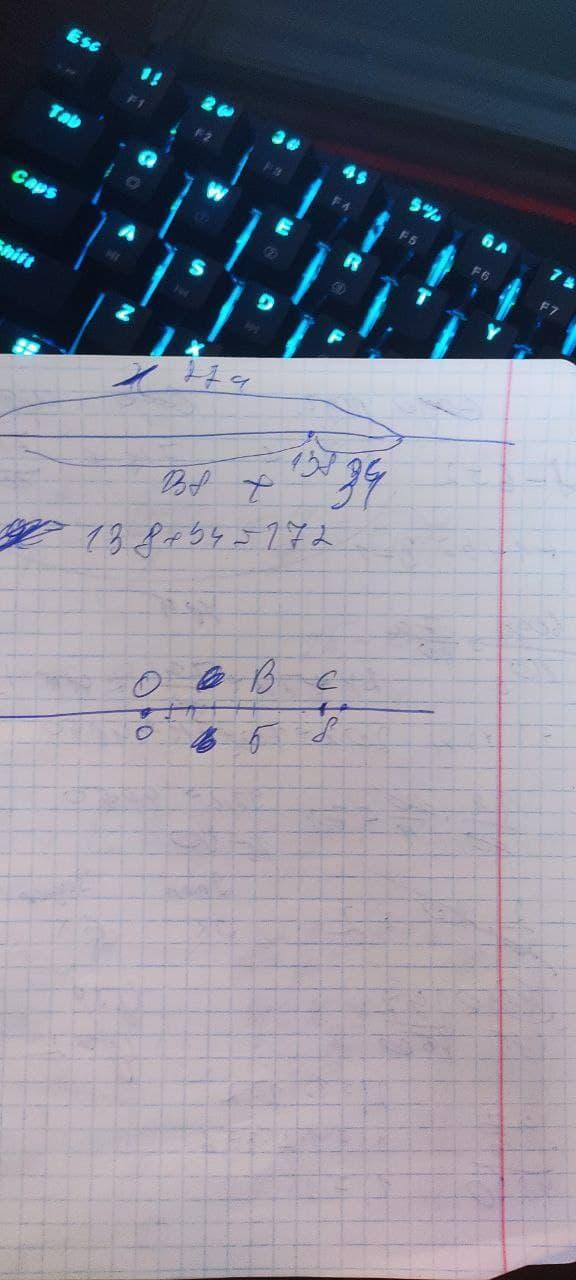 Esc
1! F1 2@ F2 3# F3 4$ F4 5% F5 6^ F6 7& F7
Tab Q W E R T Y
Caps A S D F
Shift Z X
138 + 138 34
138+34=172
O B C
0 5 8